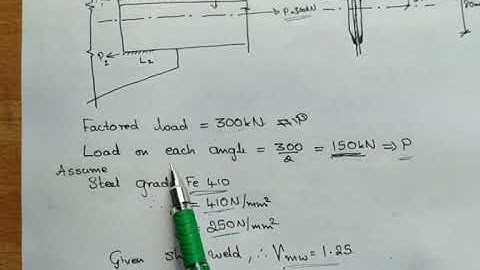 P=300kN
80mm
P₁ L₂
Factored load = 300kN ⇒ P
Load on each angle = 300/2 = 150kN ⇒ P
Assume
Steel grade Fe 410
∴ = 410N/mm²
250N/mm²
Given sh weld, ∴ γmw = 1.25